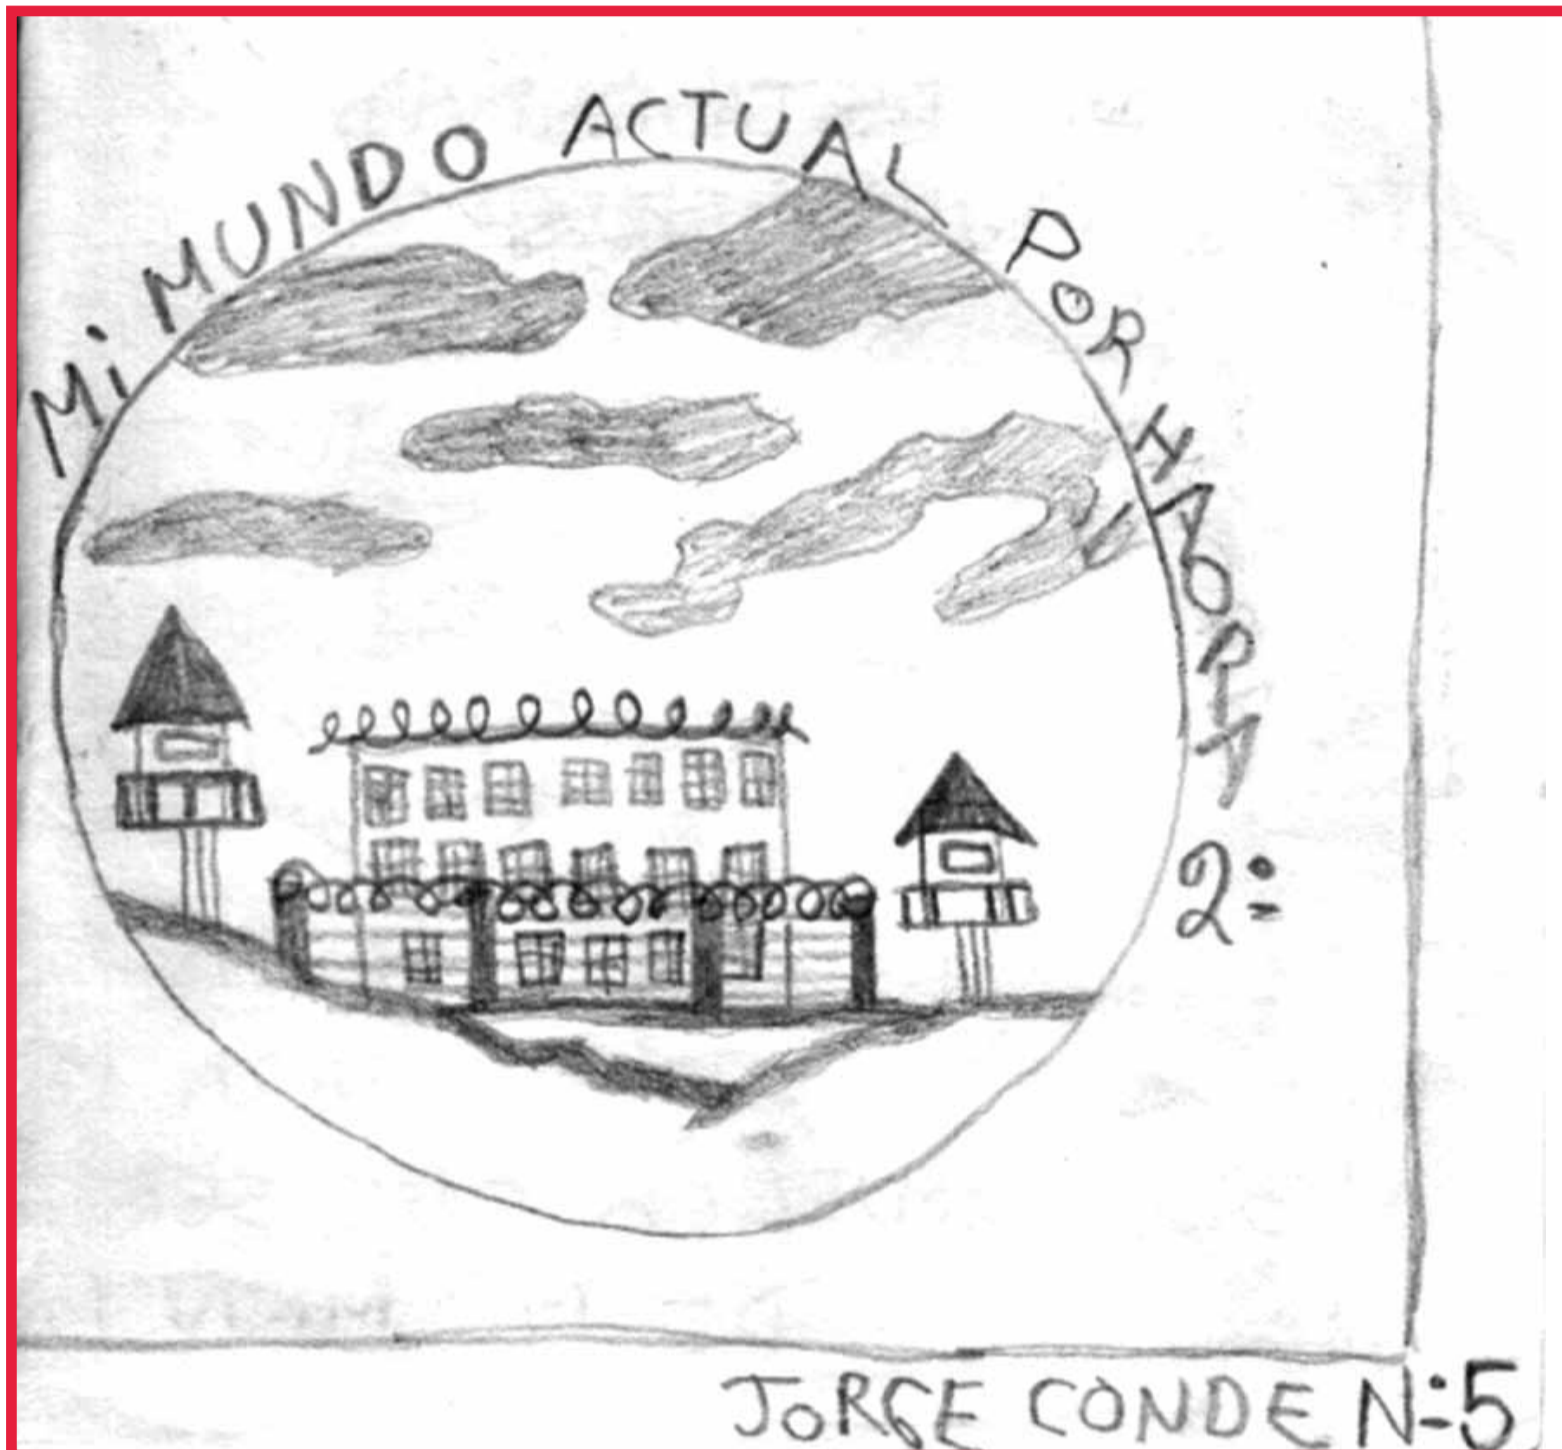 Mi MUNDO ACTUAL POR HAORA 2:
JORGE CONDE N:5